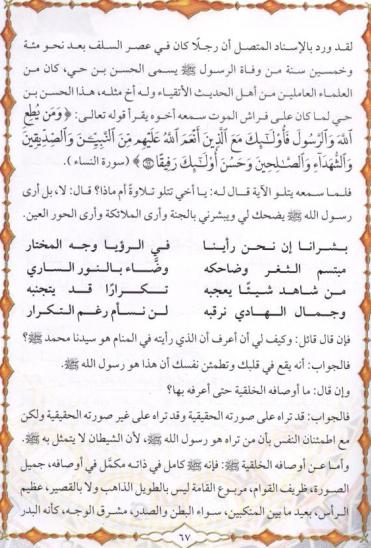 لقد ورد بالإسناد المتصل أن رجلًا كان في عصر السلف بعد نحو مئة
وخمسين سنة من وفاة الرسول ﷺ يسمى الحسن بن حي، كان من
العلماء العاملين من أهل الحديث الأتقياء وله أخ مثله، هذا الحسن بن
حي لما كان على فراش الموت سمعه أخوه يقرأ قوله تعالى: ﴿وَمَن يُطِعِ
اللَّهَ وَالرَّسُولَ فَأُوْلَٰٓئِكَ مَعَ الَّذِينَ أَنْعَمَ اللَّهُ عَلَيْهِم مِّنَ النَّبِيِّـۧنَ وَالصِّدِّيقِينَ
وَالشُّهَدَآءِ وَالصَّٰلِحِينَ وَحَسُنَ أُوْلَٰٓئِكَ رَفِيقًا﴾ (سورة النساء).
فلما سمعه يتلو الآية قال له: يا أخي تتلو تلاوة أم ماذا؟ قال: لا، بل أرى
رسول الله ﷺ يضحك لي ويبشرني بالجنة وأرى الملائكة وأرى الحور العين.
بشرانا إن نحن رأينا في الرؤيا وجه المختار
مبتسم الثغر وضاحكه وضَّاء بالنور الساري
من شاهد شيئًا يعجبه تكرارًا قد يتجنبه
وجمال الهادي نرقبه لن نسأم رغم التكرار
فإن قال قائل: وكيف لي أن أعرف أن الذي رأيته في المنام هو سيدنا محمد ﷺ؟
فالجواب: أنه يقع في قلبك وتطمئن نفسك أن هذا هو رسول الله ﷺ.
وإن قال: ما أوصافه الخلقية حتى أعرفه بها؟
فالجواب: قد تراه على صورته الحقيقية وقد تراه على غير صورته الحقيقية ولكن
مع اطمئنان النفس بأن من تراه هو رسول الله ﷺ، لأن الشيطان لا يتمثل به ﷺ.
وأما عن أوصافه الخلقية ﷺ: فإنه ﷺ كامل في ذاته مكمَّل في أوصافه، جميل
الصورة، ظريف القوام، مربوع القامة ليس بالطويل الذاهب ولا بالقصير، عظيم
الرأس، بعيد ما بين المنكبين، سواء البطن والصدر، مشرق الوجه، كأنه البدر
٦٧